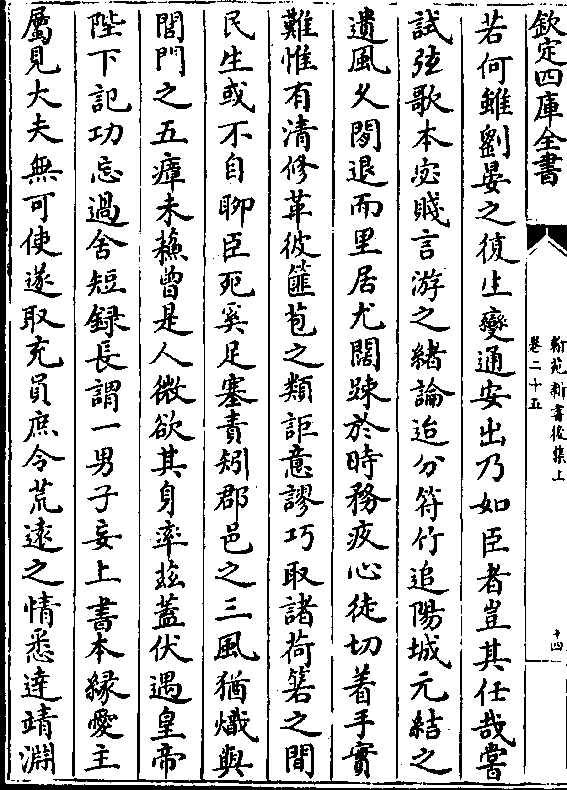 欽定四庫全書
翰苑新書後集上
卷二十五
十四
若何雖劉晏之復生變通安出乃如臣者豈其任哉嘗
試弦歌本宓賤言游之緒論迨分符竹追陽城元結之
遺風乆閒退而里居尤闊踈於時務疚心徒切着手實
難惟有清修革彼篚苞之類詎意謬巧取諸荷篛之間
民生或不自聊臣死奚足塞責矧郡邑之三風猶熾與
閭門之五瘴未蘓曽是人微欲其身率兹蓋伏遇皇帝
陛下記功忘過舍短録長謂一男子妄上書本縁愛主
屬見大夫無可使遂取充員庶令荒逺之情悉達靖淵